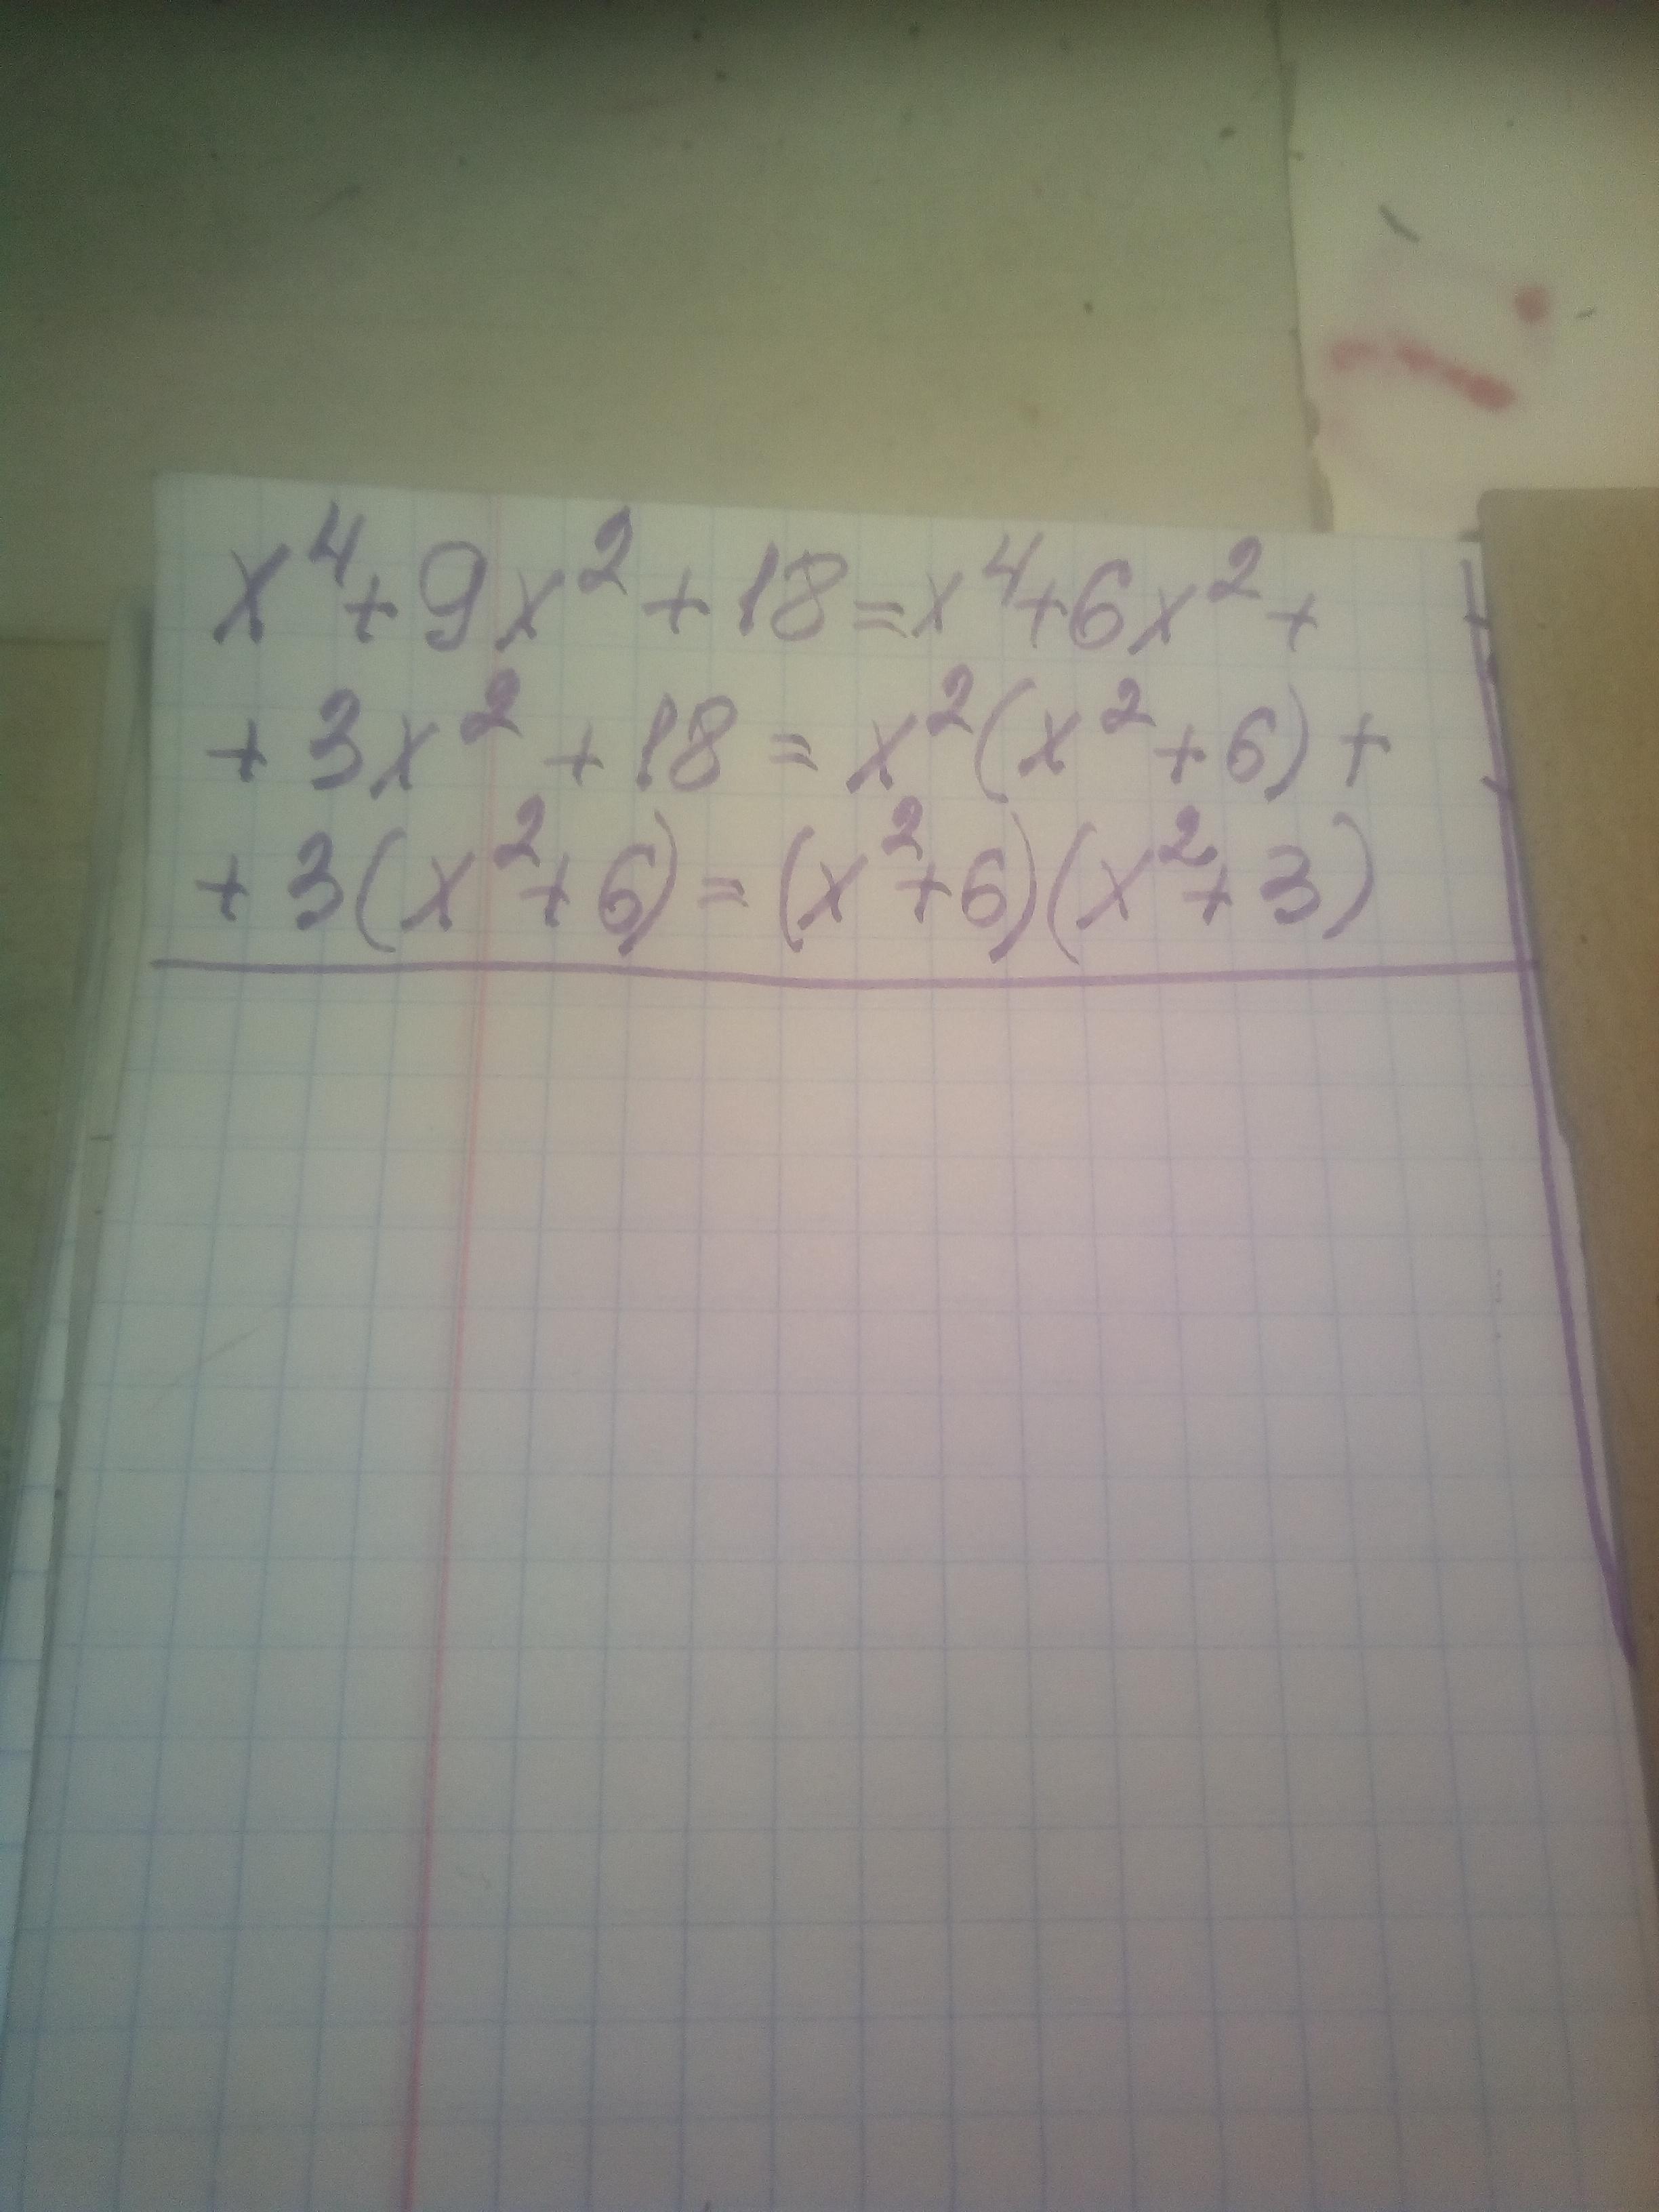 x⁴+9x²+18=x⁴+6x²+
+3x²+18=x²(x²+6)+
+3(x²+6)=(x²+6)(x²+3)